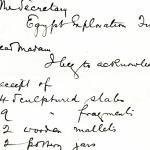 The Secretary
Egypt Exploration Fu
Dear Madam
I beg to acknowle
receipt of
4 Sculptured slabs
9 " fragments
2 wooden mallets
2 pottery jars